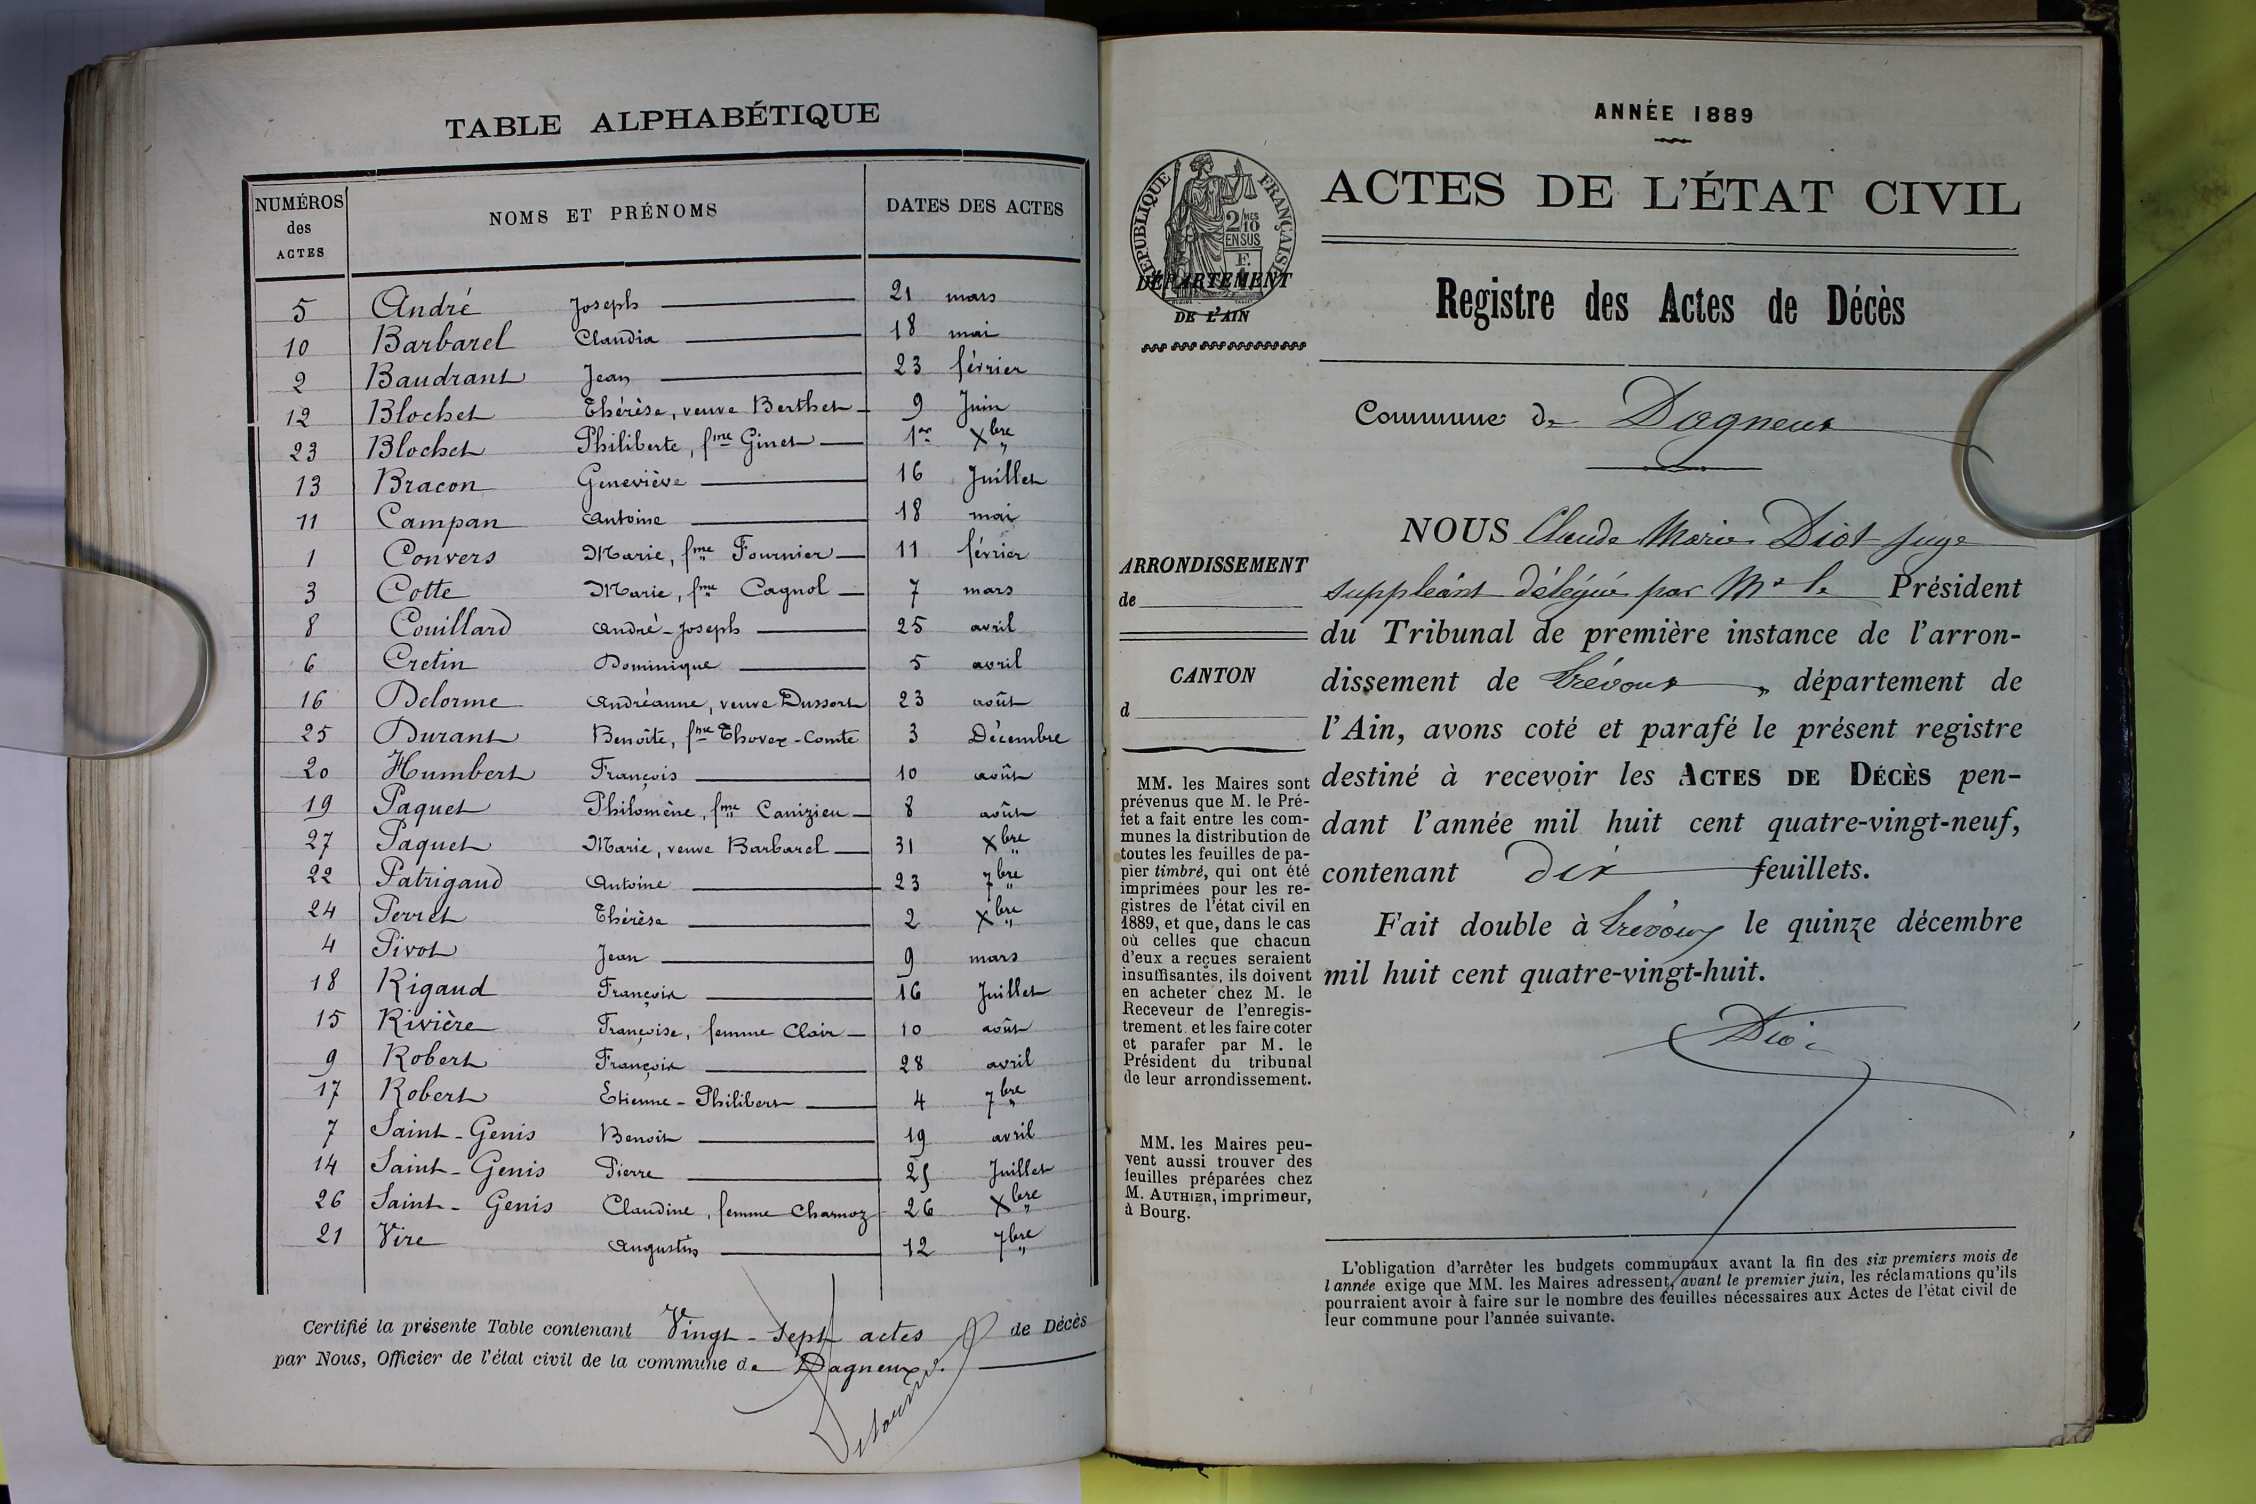 TABLE ALPHABÉTIQUE
NUMÉROS des ACTES NOMS ET PRÉNOMS DATES DES ACTES
5 André Joseph 21 mars
10 Barbarel Claudia 18 mai
2 Baudrant Jean 23 février
12 Blochet Thérèse, veuve Berthet 9 Juin
23 Blochet Philiberte, fme Ginet 1er Xbre
13 Bracon Geneviève 16 Juillet
11 Campan Antoine 18 mai
1 Convers Marie, fme Fournier 11 février
3 Cotte Marie, fme Cagnol 7 mars
8 Couillard André-Joseph 25 avril
6 Cretin Dominique 5 avril
16 Delorme Andréanne, veuve Dussort 23 août
25 Durant Benoîte, fme Thovex-Comte 3 Décembre
20 Humbert François 10 août
19 Paquet Philomène, fme Canizieu 8 août
27 Paquet Marie, veuve Barbarel 31 Xbre
22 Patrigaud Antoine 23 7bre
24 Perret Thérèse 2 Xbre
4 Pivot Jean 9 mars
18 Rigaud François 16 Juillet
15 Rivière Françoise, femme Clair 10 août
9 Robert François 28 avril
17 Robert Etienne-Philibert 4 7bre
7 Saint-Genis Benoit 19 avril
14 Saint-Genis Pierre 25 Juillet
26 Saint-Genis Claudine, femme Charnoz 26 Xbre
21 Vire Augustin 12 7bre
Certifié la présente Table contenant Vingt-sept actes de Décès
par Nous, Officier de l'état civil de la commune de Dagneux.
ANNÉE 1889
ACTES DE L'ÉTAT CIVIL
RÉPUBLIQUE FRANÇAISE
2/10MES
EN SUS
DÉPARTEMENT
DE L'AIN
Registre des Actes de Décès
Commune de Dagneux
ARRONDISSEMENT
de
CANTON
d
MM. les Maires sont
prévenus que M. le Pré-
fet a fait entre les com-
munes la distribution de
toutes les feuilles de pa-
pier timbré, qui ont été
imprimées pour les re-
gistres de l'état civil en
1889, et que, dans le cas
où celles que chacun
d'eux a reçues seraient
insuffisantes, ils doivent
en acheter chez M. le
Receveur de l'enregis-
trement et les faire coter
et parafer par M. le
Président du tribunal
de leur arrondissement.
MM. les Maires peu-
vent aussi trouver des
feuilles préparées chez
M. AUTHIER, imprimeur,
à Bourg.
NOUS Claude Marie Diot juge
suppléant délégué par Mr le Président
du Tribunal de première instance de l'arron-
dissement de Trévoux, département de
l'Ain, avons coté et parafé le présent registre
destiné à recevoir les ACTES DE DÉCÈS pen-
dant l'année mil huit cent quatre-vingt-neuf,
contenant dix feuillets.
Fait double à Trévoux le quinze décembre
mil huit cent quatre-vingt-huit.
Diot
L'obligation d'arrêter les budgets communaux avant la fin des six premiers mois de
l'année exige que MM. les Maires adressent, avant le premier juin, les réclamations qu'ils
pourraient avoir à faire sur le nombre des feuilles nécessaires aux Actes de l'état civil de
leur commune pour l'année suivante.